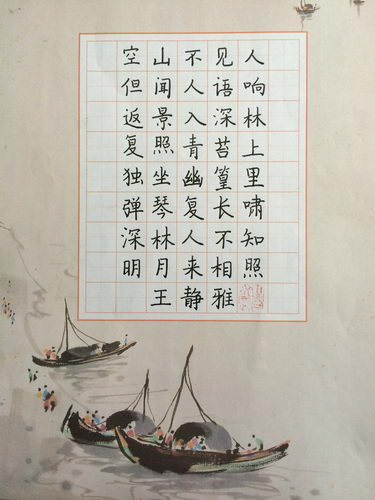 空山不见人
但闻人语响
返景入深林
复照青苔上
独坐幽篁里
弹琴复长啸
深林人不知
明月来相照
王静雅